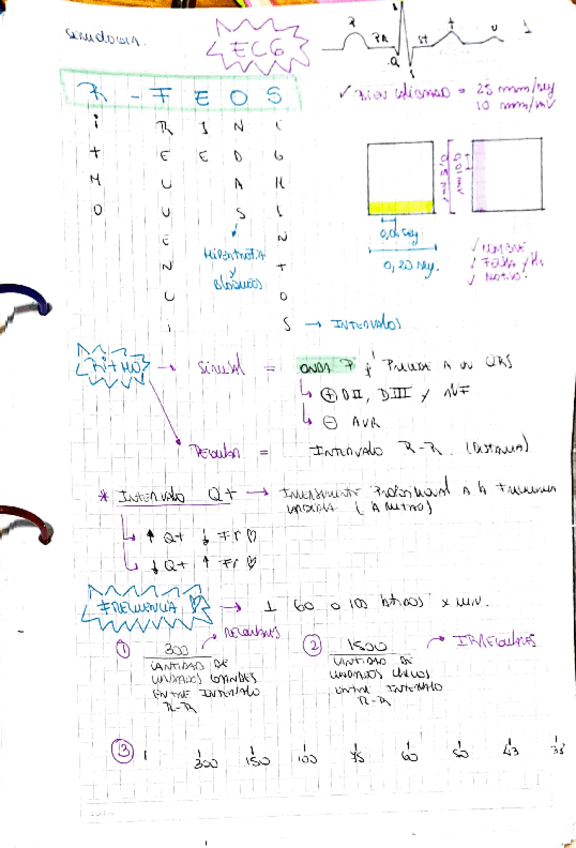 Semiología.
ECG
P PR Q S ST T U 1
R - F E O S
✓ Bien calibrado = 25 mm/seg
10 mm/mV
Ritmo
Frecuenci
EJE
ONDAS
SEGMENTOS
0,5 mV
0,1 mV
0,04 seg
0,20 seg.
Hipertrofia
y
Bloqueos
✓ Nombre
✓ Fecha y Hs
✓ Motivo.
→ Intervalos
Ritmo → Sinusal = Onda P ⊕ precede a un QRS
↳ ⊕ DII, DIII y AVF
↳ ⊖ AVR
Regular = Intervalo R-R. (Distancia)
* Intervalo QT → Inversamente Proporcional a la Frecuencia
cardíaca (
↳ ↑ QT ↓ Fr ♡
↳ ↓ QT ↑ Fr ♡
Frecuencia ♡ → ⊥ 60 o 100 latidos x min.
① 300 → Regulares
Cantidad de
cuadrados grandes
entre intervalo
R-R
② 1500 → Irregulares
Cantidad de
cuadrados chicos
entre intervalo
R-R
③ 300 150 100 75 60 50 43 38